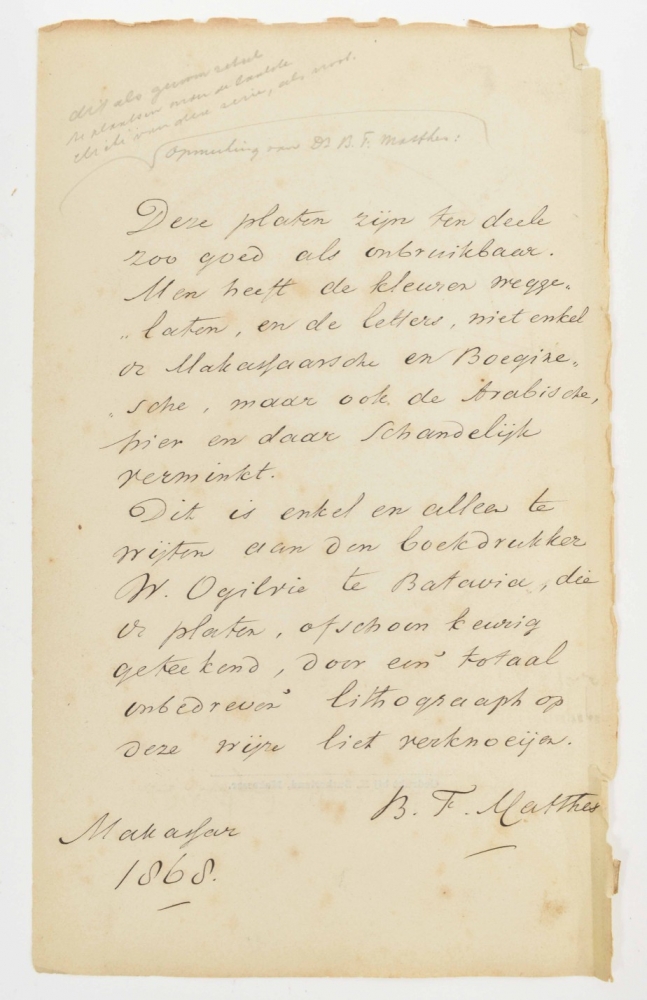 dit als
te plaatsen van de
van deze serie, als noot.
Opmerking van Dr B. F. Matthes:
Deze platen zijn ten deele
zoo goed als onbruikbaar.
Men heeft de kleuren wegge„
„laten, en de letters, niet enkel
de Makassaarsche en Boegine„
„sche, maar ook de Arabische,
hier en daar schandelijk
verminkt.
Dit is enkel en alleen te
wijten aan den boekdrukker
W. Ogilvie te Batavia, die
de platen, ofschoon keurig
geteekend, door een totaal
onbedreven lithograaph op
deze wijze liet verknoeijen.
B. F. Matthes
Makassar
1868.